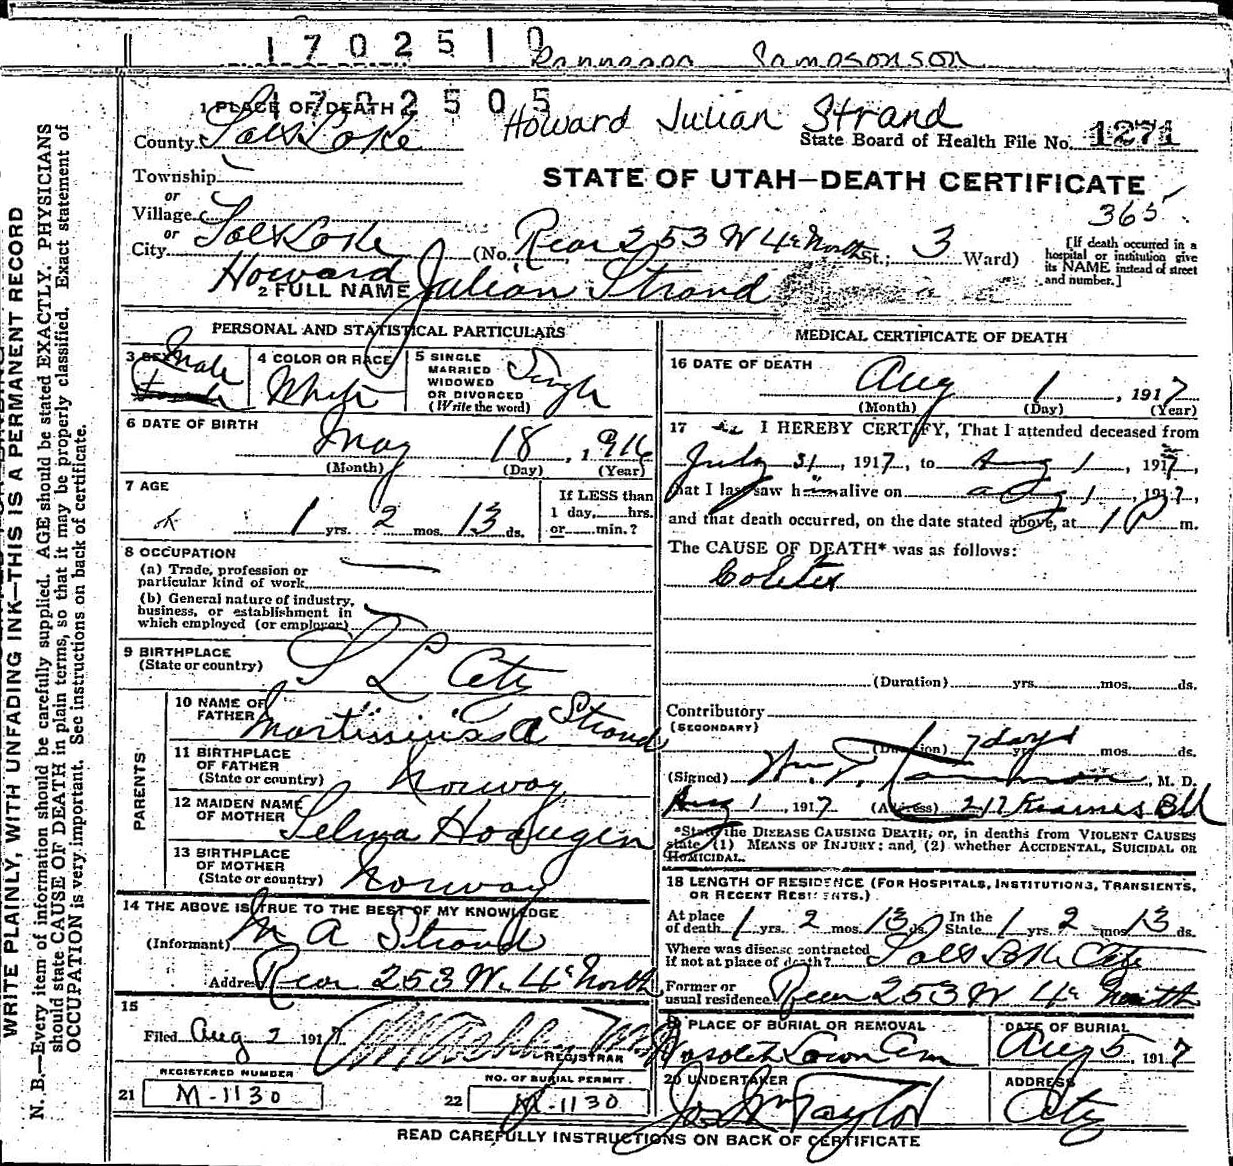 1702510
1702505
Howard Julian Strand
1 PLACE OF DEATH
County Salt Lake
State Board of Health File No. 1271
STATE OF UTAH—DEATH CERTIFICATE
Township
or
Village
or
City Salt Lake (No. Rear 253 W 4th North St.; 3 Ward)
365
[If death occurred in a hospital or institution give its NAME instead of street and number.]
2 FULL NAME Howard Julian Strand
PERSONAL AND STATISTICAL PARTICULARS
3 SEX Male
4 COLOR OR RACE White
5 SINGLE MARRIED WIDOWED OR DIVORCED (Write the word) Single
6 DATE OF BIRTH May 18, 1916
(Month) (Day) (Year)
7 AGE 1 yrs. 2 mos. 13 ds.
If LESS than 1 day, hrs. or min.?
8 OCCUPATION
(a) Trade, profession or particular kind of work
(b) General nature of industry, business, or establishment in which employed (or employer)
9 BIRTHPLACE (State or country) S L City
PARENTS
10 NAME OF FATHER A Strand
11 BIRTHPLACE OF FATHER (State or country) Norway
12 MAIDEN NAME OF MOTHER Selma
13 BIRTHPLACE OF MOTHER (State or country) Norway
14 THE ABOVE IS TRUE TO THE BEST OF MY KNOWLEDGE
(Informant) M A Strand
Address Rear 253 W. 4th North
15
Filed Aug 2 1917
REGISTRAR
REGISTERED NUMBER
21 M-1130
NO. OF BURIAL PERMIT
22 M-1130
MEDICAL CERTIFICATE OF DEATH
16 DATE OF DEATH Aug 1, 1917
(Month) (Day) (Year)
17 I HEREBY CERTIFY, That I attended deceased from
July 31, 1917, to Aug 1, 1917,
that I last saw him alive on Aug 1, 1917,
and that death occurred, on the date stated above, at 1 P m.
The CAUSE OF DEATH* was as follows:
Colitis
(Duration) yrs. mos. ds.
Contributory
(SECONDARY)
(Duration) 7 days yrs. mos. ds.
(Signed) Wm. T. M. D.
Aug 1, 1917 (Address) 217 Kearns Bld
*State the DISEASE CAUSING DEATH; or, in deaths from VIOLENT CAUSES
state (1) MEANS OF INJURY; and, (2) whether ACCIDENTAL, SUICIDAL OR
HOMICIDAL.
18 LENGTH OF RESIDENCE (FOR HOSPITALS, INSTITUTIONS, TRANSIENTS,
OR RECENT RESIDENTS.)
At place of death 1 yrs. 2 mos. 13 ds. In the State 1 yrs. 2 mos. 13 ds.
Where was disease contracted if not at place of death? Salt Lake City
Former or usual residence Rear 253 W 4th North
19 PLACE OF BURIAL OR REMOVAL Lawn Cem
DATE OF BURIAL Aug 5, 1917
20 UNDERTAKER Jos Wm Taylor
ADDRESS City
READ CAREFULLY INSTRUCTIONS ON BACK OF CERTIFICATE
WRITE PLAINLY, WITH UNFADING INK—THIS IS A PERMANENT RECORD
N. B.—Every item of information should be carefully supplied. AGE should be stated EXACTLY. PHYSICIANS
should state CAUSE OF DEATH in plain terms, so that it may be properly classified. Exact statement of
OCCUPATION is very important. See instructions on back of certificate.